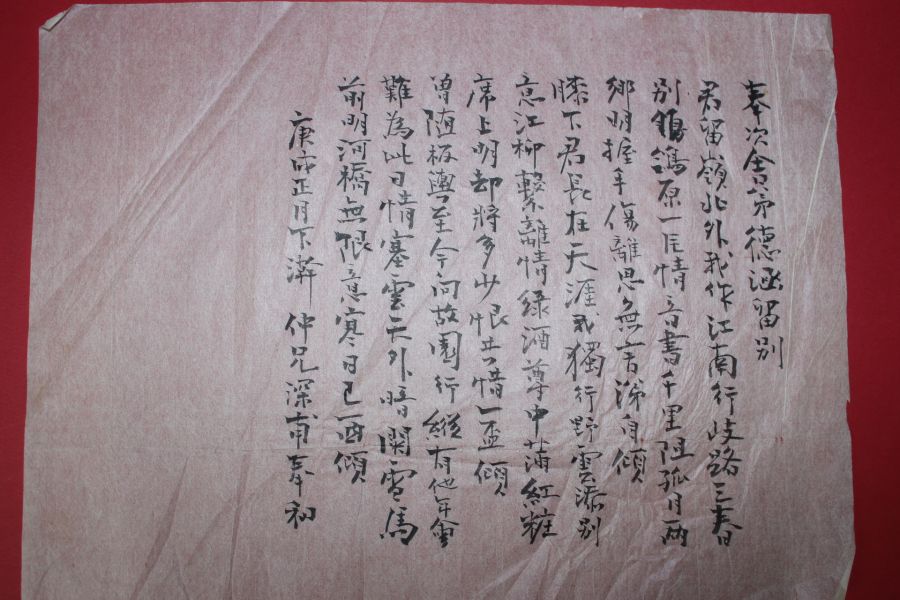 奉次舍弟德涵留別
君留嶺北外我作江南行歧路三春
別鶺鴒原一片情音書千里阻孤月兩
鄉明握手傷離思無言涕自傾
膝下君長在天涯我獨行野雲添別
意江柳繫離情綠酒尊中蒲紅粧
席上明却將多少恨共惜一盃傾
曾隨板輿至今向故園行縱有他年會
難為此日情塞雲天外暗關雪馬
前明河橋無限意寒日已西傾
庚戌正月下澣 仲兄深甫奉和